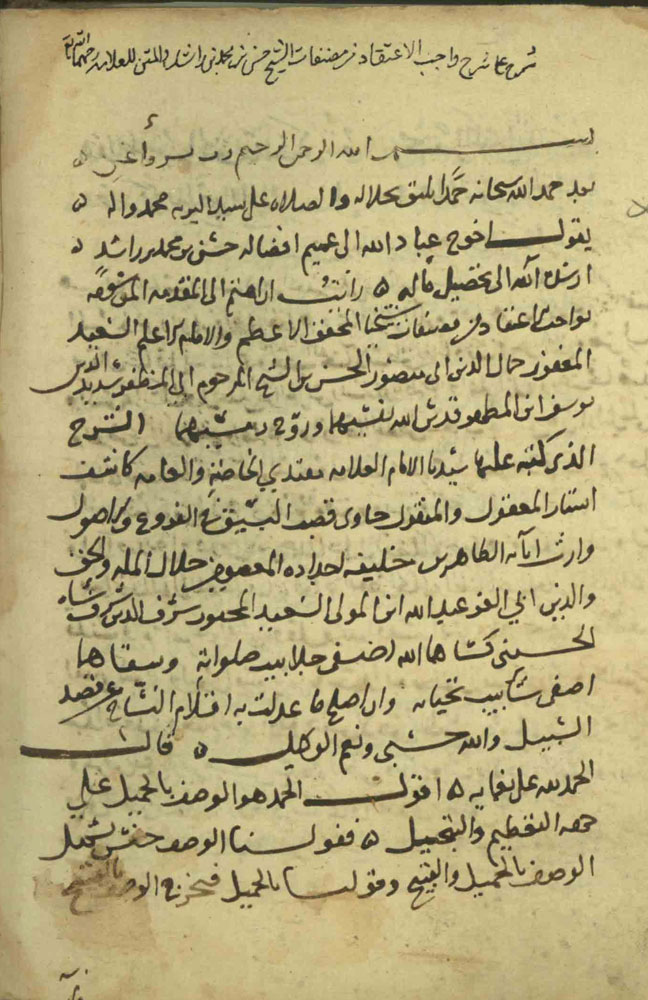 شرح على شرح واجب الاعتقاد من مصنفات الشيخ حسن بن محمد بن راشد والمتن للعلامه رحمهما الله تعالى
بسم الله الرحمن الرحيم رب يسر وأعن
بعد حمد الله سبحانه حمدًا يليق بجلاله والصلاه على سيد البريه محمد واله
يقول احوج عباد الله الى عميم افضاله حسن بن محمد بن راشد
ارشده الله الى تحصيل ماله رانت ان اضم الى المقدمه الموسومه
بواجب الاعتقاد من مصنفات شيخنا المحقق الاعظم والامام الاعلم السعيد
المغفور جمال الدين ابى منصور الحسن بن الشيخ المرحوم ابى المظفر سديد الدين
يوسف ابن المطهر قدس الله نفسيهما وروّح رمسيهما الشرح
الذى كتبه عليها سيدنا الامام العلامه مقتدي الخاصّة والعامه كاشف
استار المعقول والمنقول حاوى قصب السبق فى الفروع والاصول
وارث ابائه الطاهرين خليفه اجداده المعصومين جلال المله والحق
والدين ابي عبد الله ابن المولى السعيد شرف الدين شرفشاه
الحسينى كساهما الله اضفى جلابيب صلواته وسقاهما
اصفى شآبيب تحياته وان اصلح ما عدلت به اقلام النساخ عن قصد
السبيل والله حسبى ونعم الوكيل قال
الحمد لله على نعمايه اقول الحمد هو الوصف بالجميل على
جهه التعظيم والتبجيل فقولنا الوصف جنس يشمل
الوصف بالجميل والقبيح وقولنا بالجميل فيخرج الوصف بالقبيح